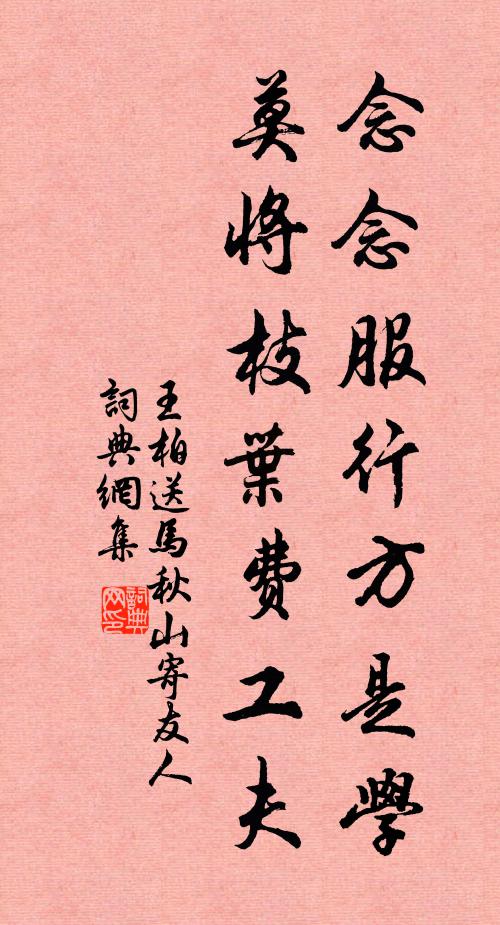 念念服行方是學
莫將枝葉費工夫
王柏送馬秋山寄友人
詞典網集
詞典
网印